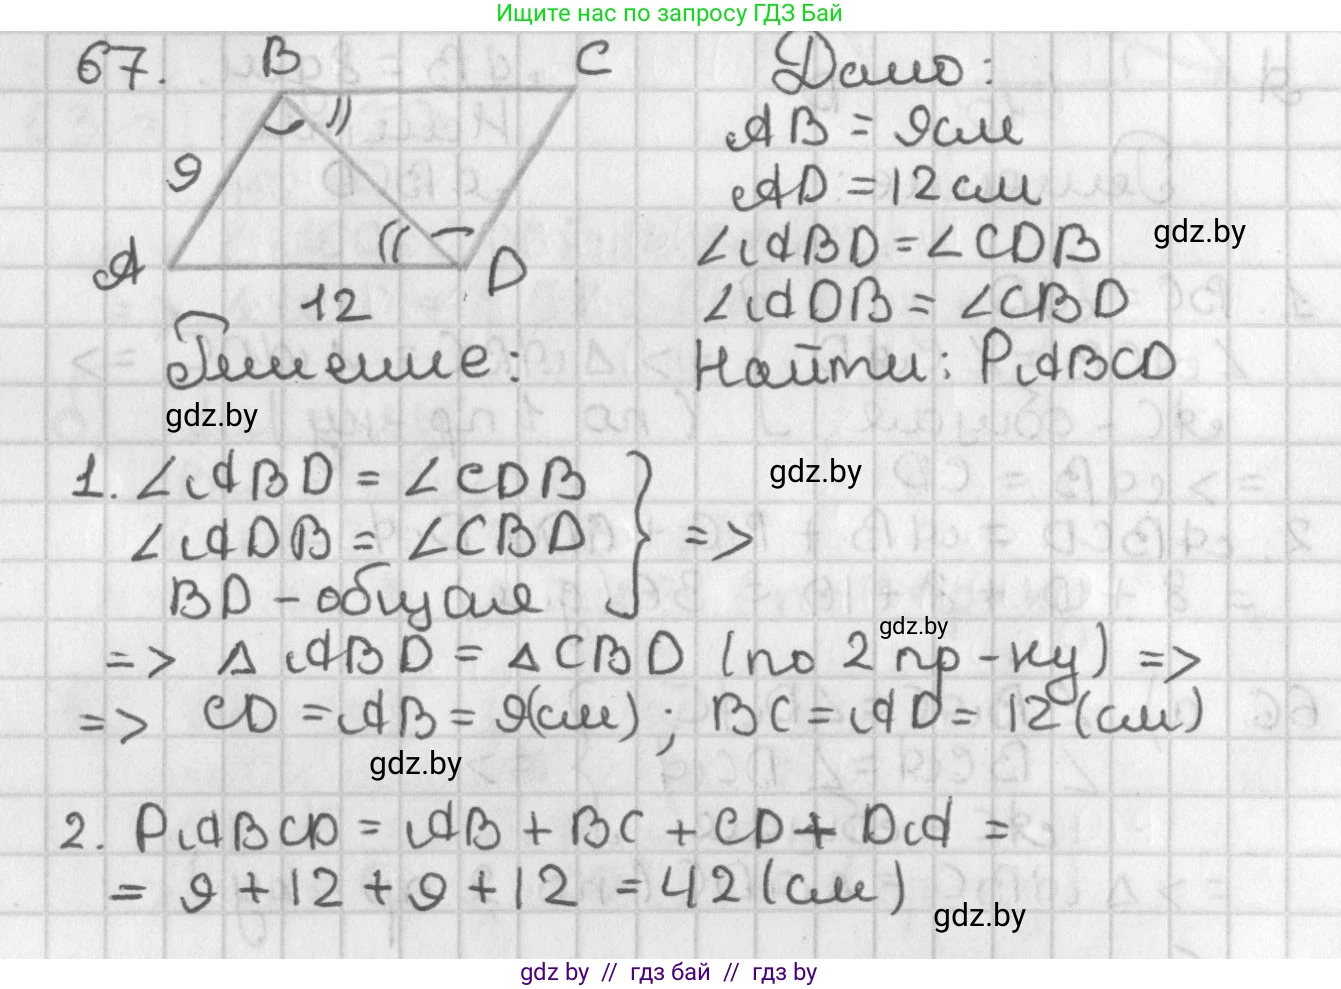 Ищите нас по запросу ГДЗ Бай
67. B C Дано:
AB = 9см
9
AD = 12см
∠ABD = ∠CDB gdz.by
A D
12 ∠ADB = ∠CBD
Решение: Найти: PABCD
gdz.by
1. ∠ABD = ∠CDB gdz.by
∠ADB = ∠CBD } =>
BD - общая
gdz.by
=> △ABD = △CBD (по 2 пр-ку) =>
=> CD = AB = 9(см); BC = AD = 12(см)
gdz.by
2. PABCD = AB + BC + CD + DA =
= 9 + 12 + 9 + 12 = 42 (см)
gdz.by
gdz by // гдз бай // гдз by